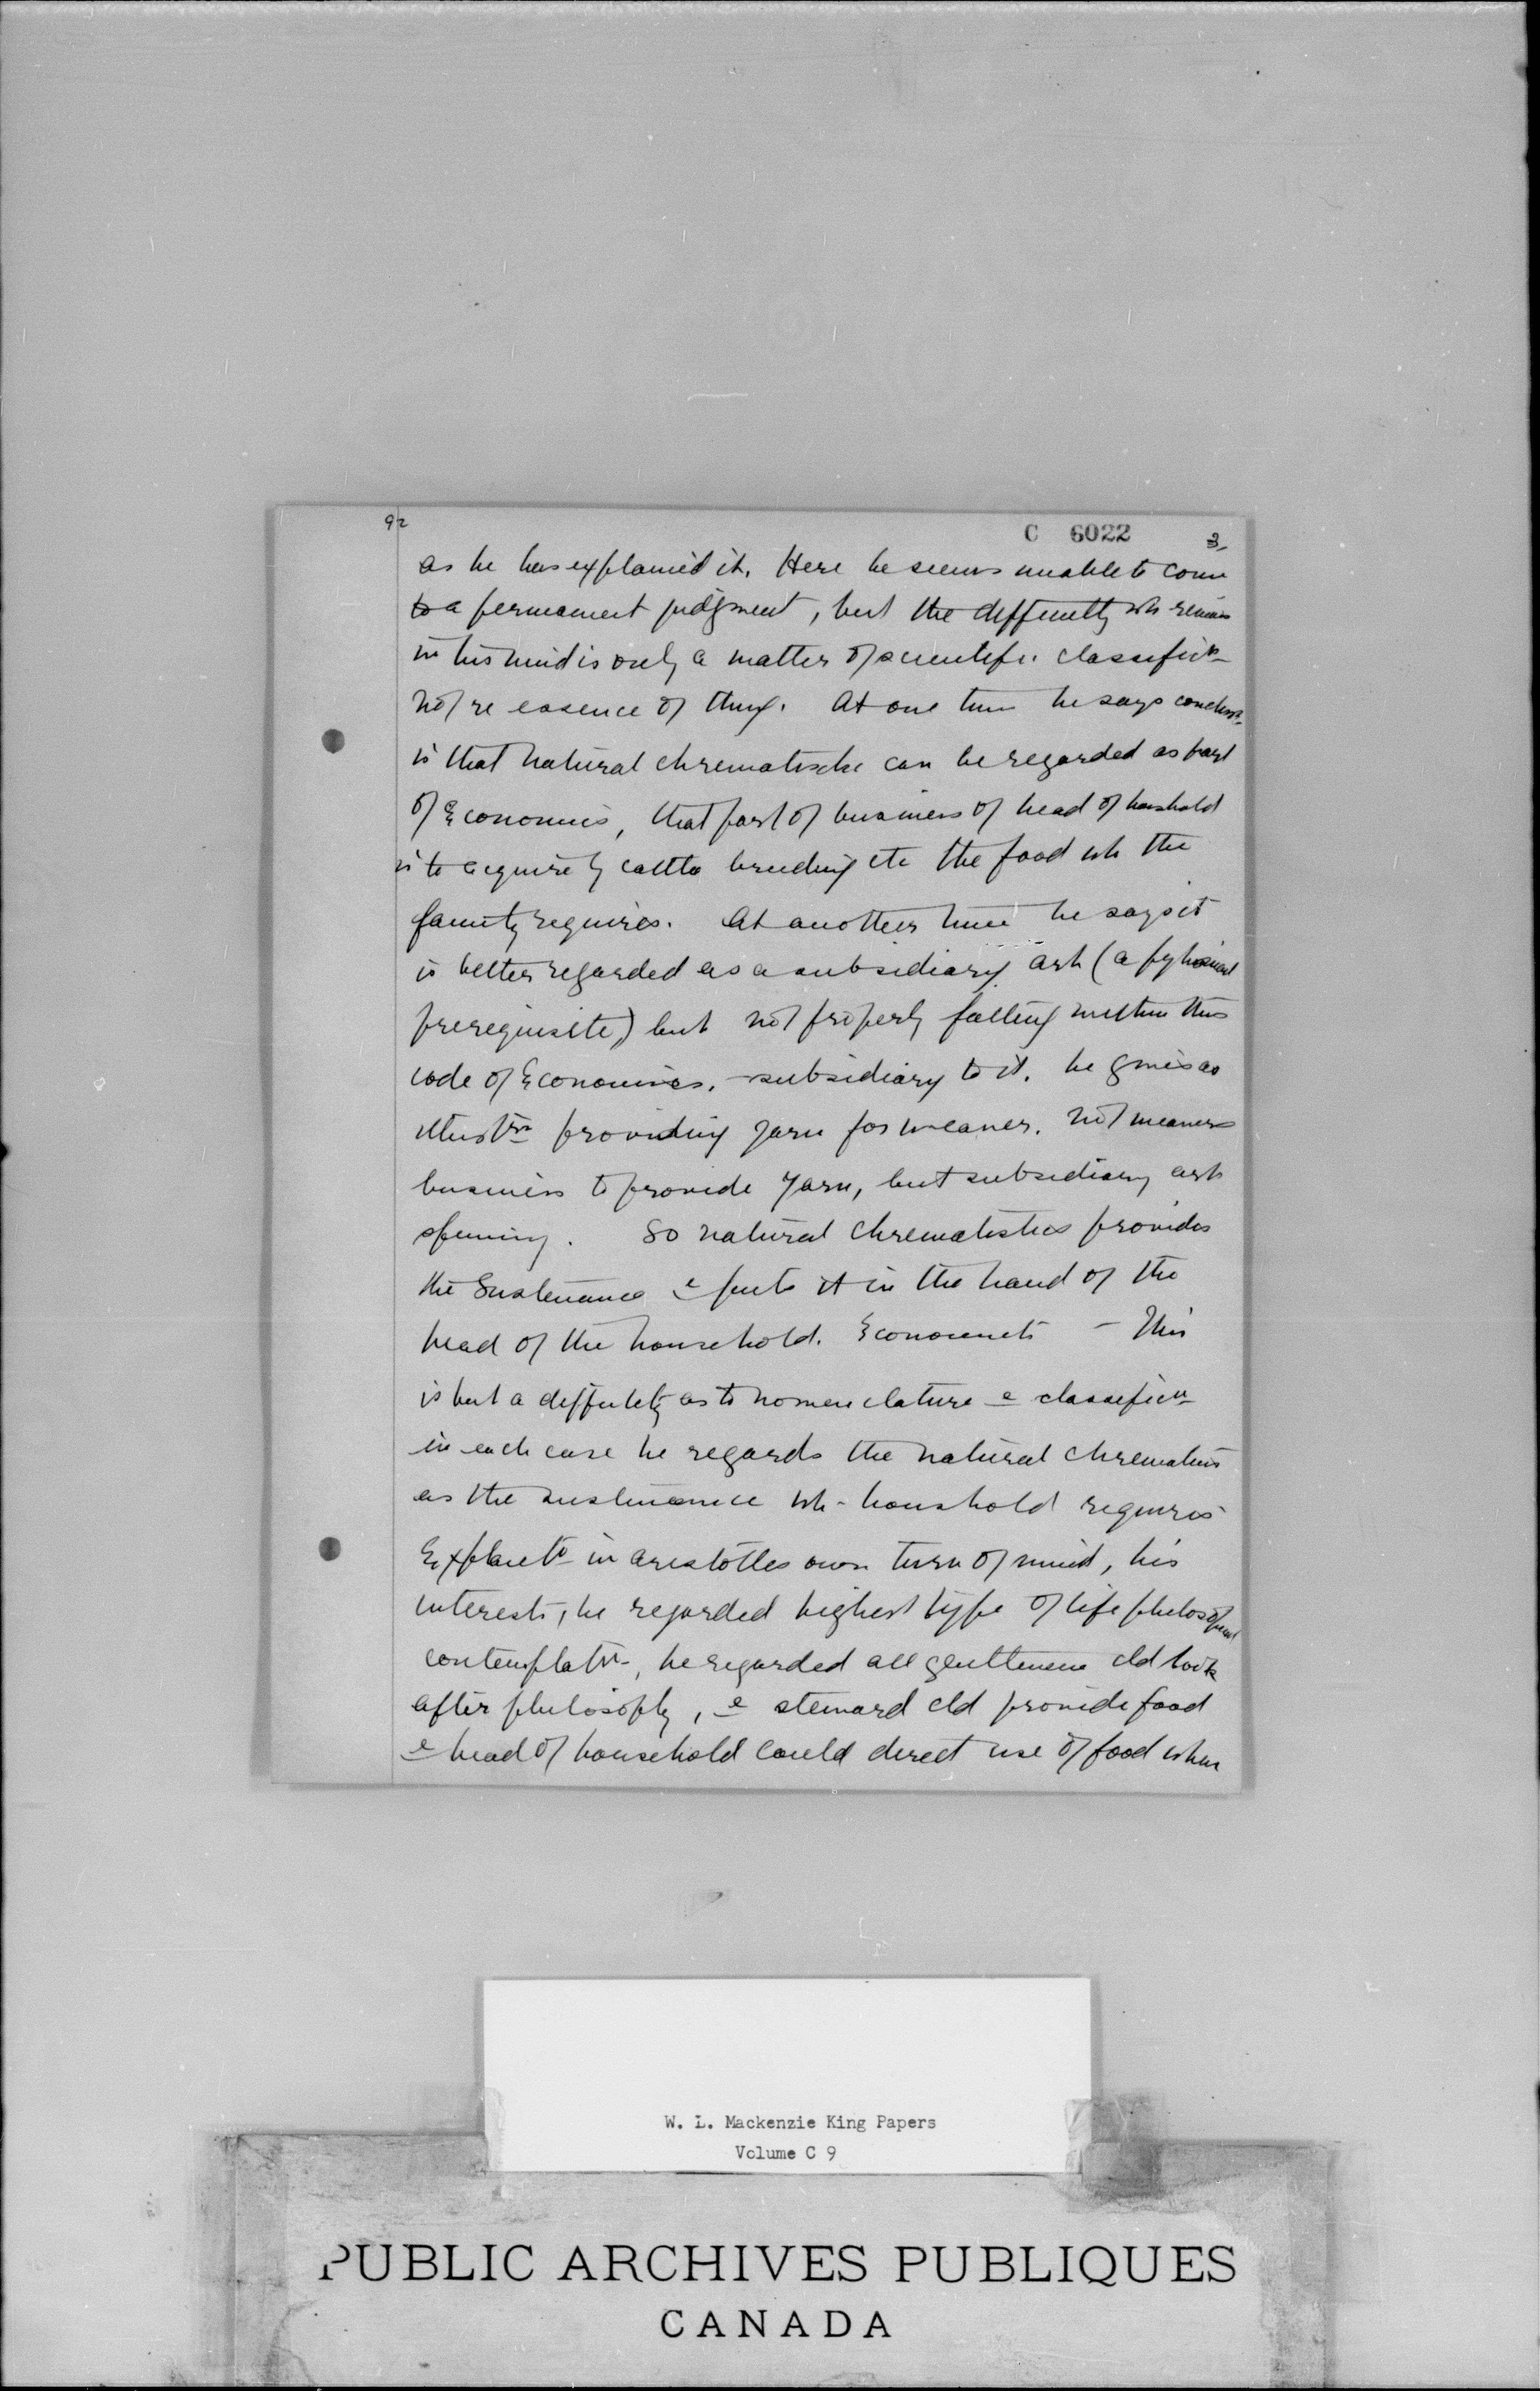 92
C 6022
3
as he has explained it. Here he seems unable to come
to a permanent judgment, but the difficulty wh remains
in his mind is only a matter of scientific classificn
not re essence of thing. At one time he says conclusn
is that natural chrematistic can be regarded as part
of Economics, that part of business of head of houshold
is to acquire by cattle breeding etc the food wh the
family requires. At another time he says it
is better regarded as a subsidiary art (a physical
prerequisite) but not properly falling within this
code of Economics, - subsidiary to it. he gives as
illustrn providing yarn for weaver. not weavers
business to provide yarn, but subsidiary art
spinning. So natural chrematistics provides
the Sustenance & puts it in the hand of the
head of the household. Economists - This
is but a difficulty as to nomenclature & classificn
in each case he regards the natural chrematistics
as the sustenance wh - houshold requires
Explantn in Aristotles own turn of mind, his
interests, he regarded highest type of life philosophical
contemplatn, he regarded all gentlemen cld look
after philosophy, & steward cld provide food
& head of household could direct use of food when
W. L. Mackenzie King Papers
Volume C 9
PUBLIC ARCHIVES PUBLIQUES
CANADA